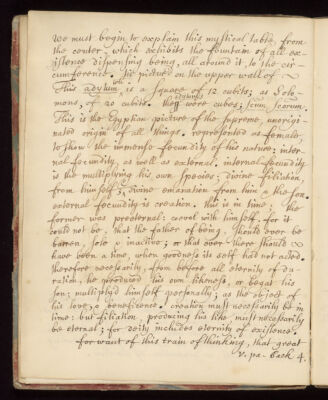 we must begin to explain this mystical table, from
the center, which exhibits the fountain of all ex-
istence dispensing being, all around it, to the cir-
cumference. tis pictured on the upper wall of
This adytum which is a square of 12 cubits; as Solo-
mons, of 20 cubits. these adytums were cubes;
This is the Egyptian picture of the supreme, unorigi-
nated origin of all things. represented as female,
to show the immense fecundity of his nature: inter-
nal fecundity, as well as external. internal fecundity
is the multiplying his own species; divine filiation,
from himself & divine emanation from him & the son.
external fecundity is creation. this is in time; the
former was preeternal: coeval with himself. for it
could not be, that the father of being, should ever be
barren, sole & inactive; or that ever there should
have been a time, when goodness its self had not acted.
therefore necessarily, from before all eternity of du-
ration, he produced his own likeness, or begat his
son; multiplyd himself personally; as the object of
his love, & beneficence. creation must necessarily be in
time: but filiation, producing his like must necessarily
be eternal; for deity includes eternity of existence.
for want of this train of thinking, that great
v. pa. back 4.